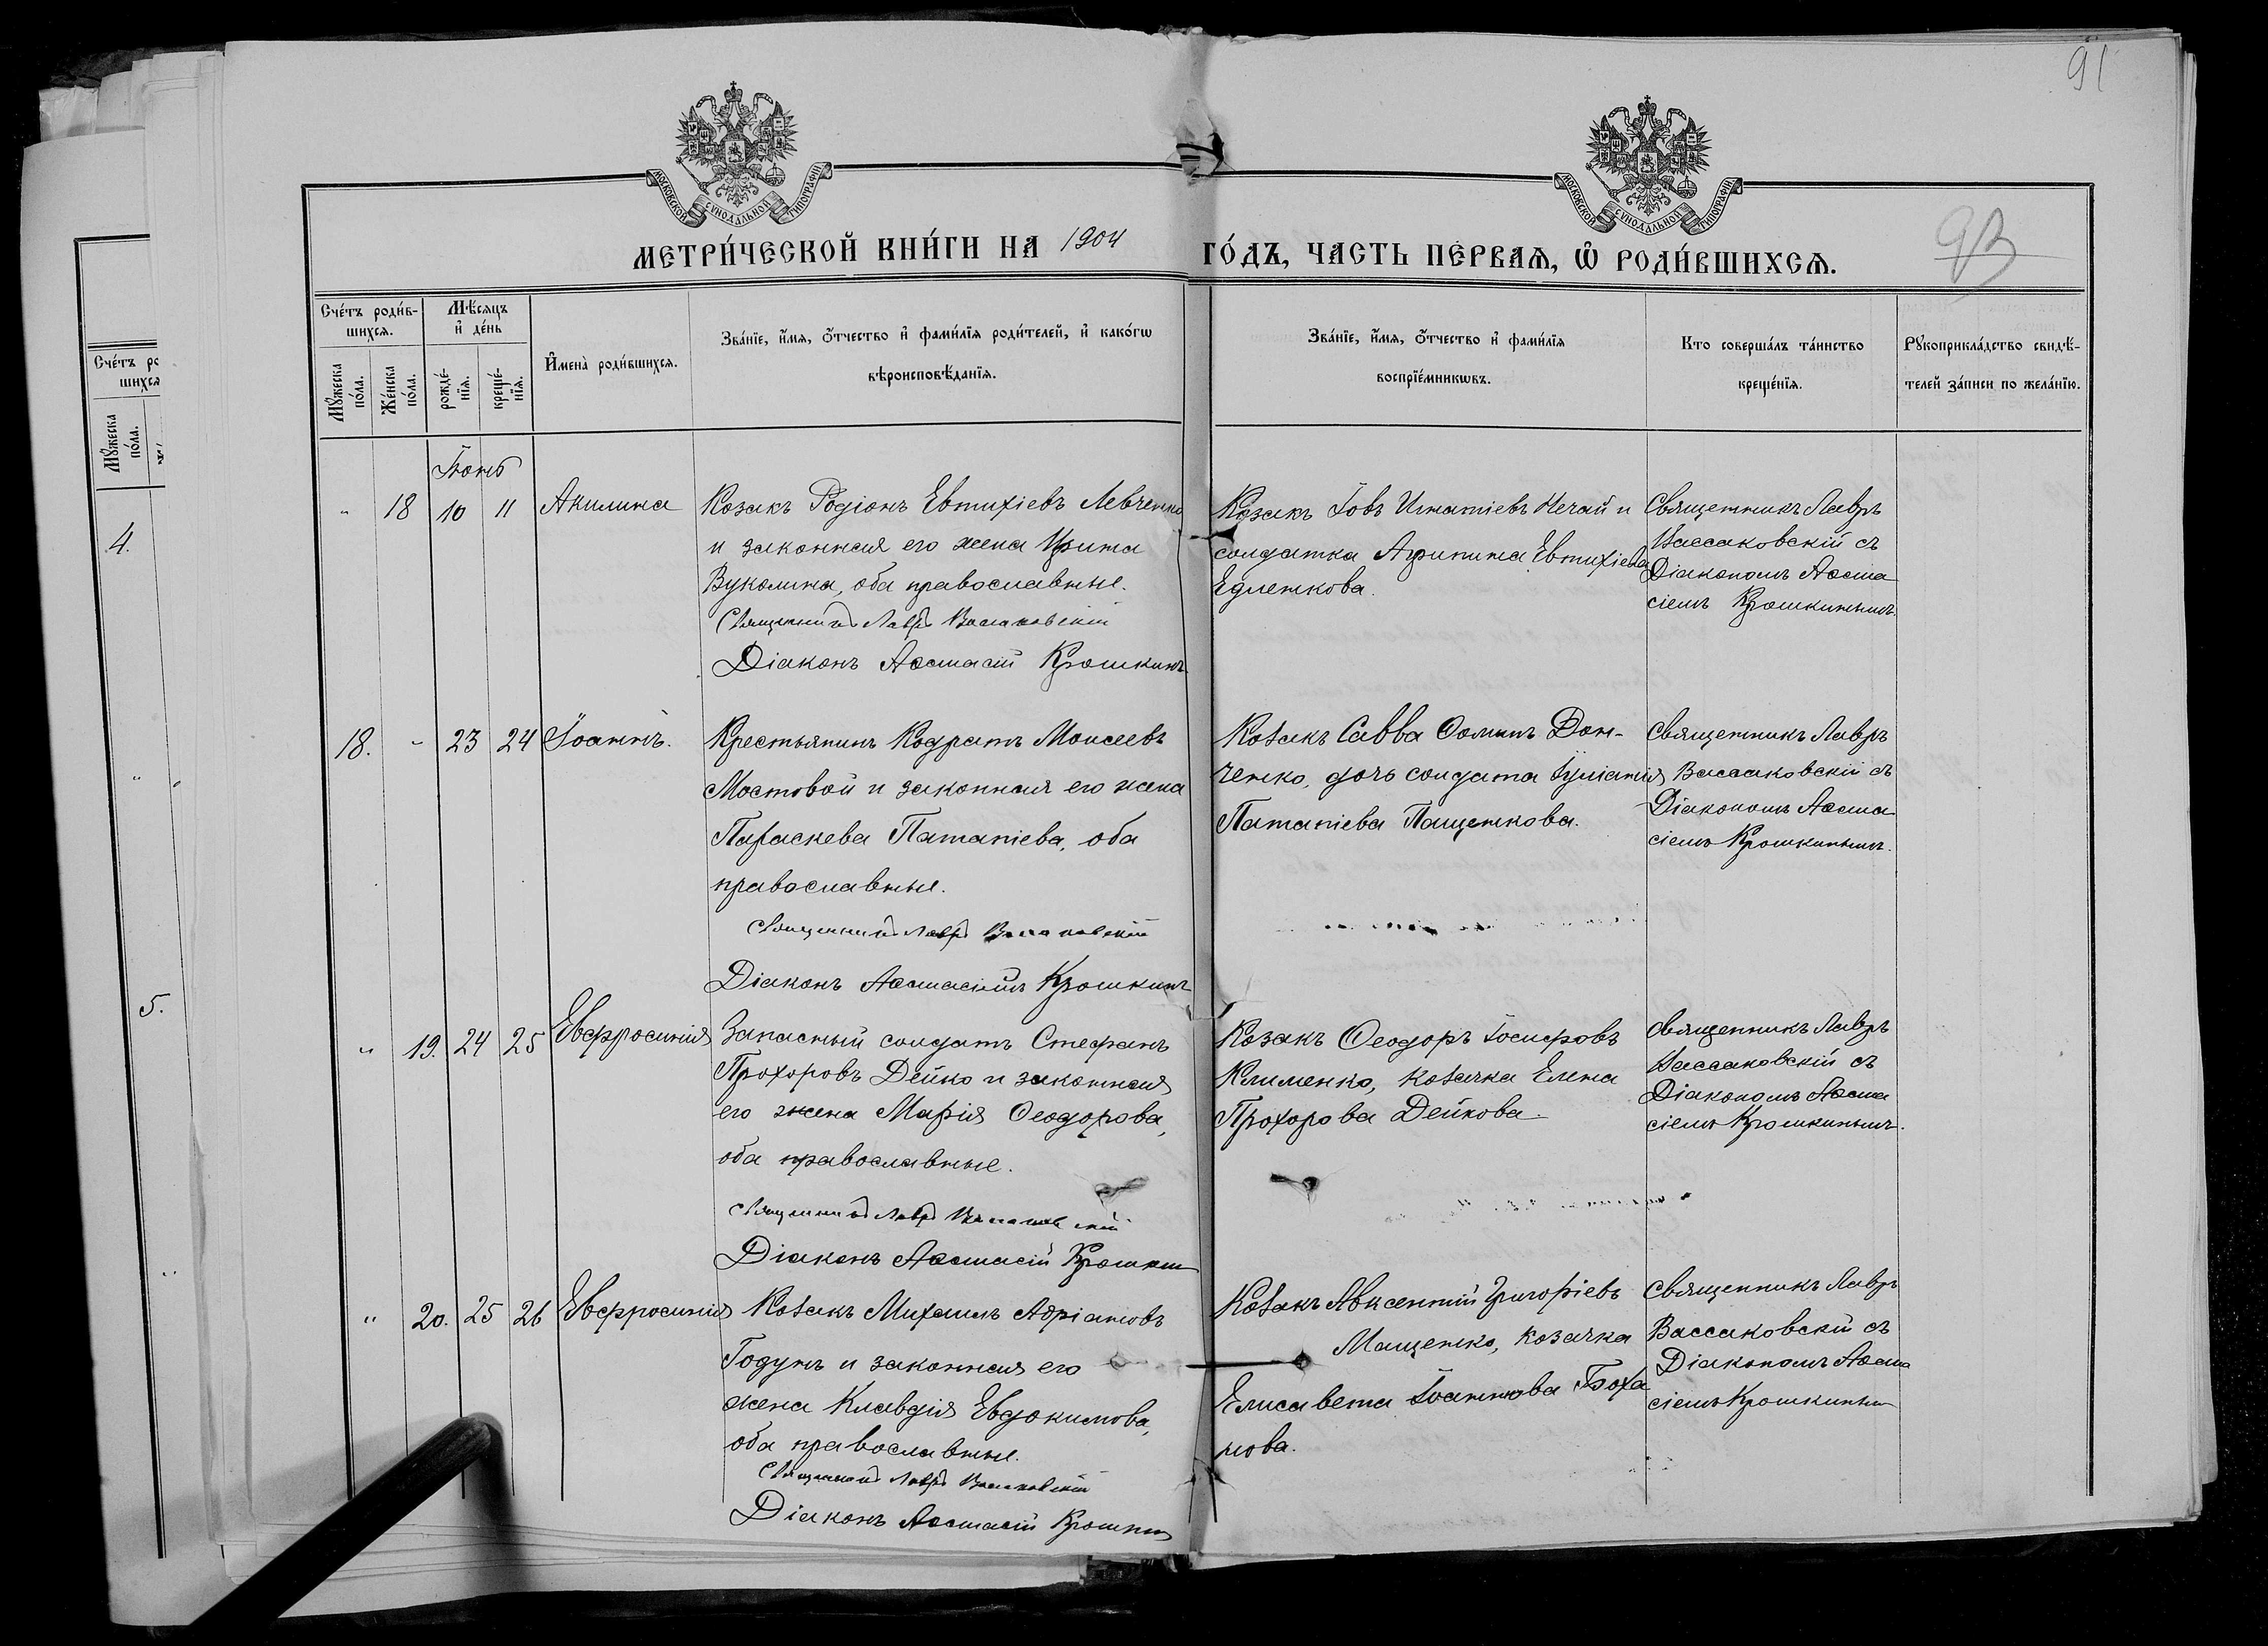 91
93
МОСКОВСКОЙ СѴНОДАЛЬНОЙ ТИПОГРАФІИ
МОСКОВСКОЙ СѴНОДАЛЬНОЙ ТИПОГРАФІИ
МЕТРИ́ЧЕСКОЙ КНИ́ГИ НА 1904 ГО́ДЪ, ЧАСТЬ ПЕ́РВАѦ, Ѡ҆ РОДИ́ВШИХСѦ.
Сче́тъ роди́в-
шихсѧ.
Мꙋ́жеска по́ла.
Же́нска по́ла.
Мѣ́сѧцъ
и҆ де́нь
рожде́-
нїѧ.
креще́-
нїѧ.
И҆мена̀ роди́вшихсѧ.
Зва́нїе, и҆́мѧ, о҆́тчество и҆ фами́лїѧ роди́телей, и҆ како́гѡ
вѣроисповѣ́данїѧ.
Зва́нїе, и҆́мѧ, о҆́тчество и҆ фами́лїѧ
воспрїе́мникѡвъ.
Кто соверша́лъ та́инство
креще́нїѧ.
Рꙋкоприкла́дство свидѣ́-
телей за́писи по жела́нїю.
Сче́тъ ро
шихсѧ
Мꙋ́жеска
по́ла.
4.
5.
Іюнь
" 18 10 11 Акилина
Козакъ Родіонъ Евтихіевъ Левченко
и законная его жена Ирина
Вуколина, оба православные.
Священникъ Лавръ Вассаковскій
Діаконъ Анастасій Крошкинъ
Козакъ Іовъ Игнатіевъ Нечай и
солдатка Агрипина Евтихіева
Едленкова.
Священникъ Лавръ
Вассаковскій съ
Діакономъ Анаста
сіемъ Крошкинымъ.
18. - 23 24 Іоаннъ.
Крестьянинъ Кодратъ Моисеевъ
Мостовой и законная его жена
Параскева Патапіева, оба
православные.
Священникъ Лавръ Вассаковскій
Діаконъ Анастасій Крошкинъ
Козакъ Савва Ѳоминъ Дон-
ченко, дочь солдата Іуліанія
Патапіева Пащенкова.
Священникъ Лавръ
Вассаковскій съ
Діакономъ Анаста
сіемъ Крошкинымъ.
" 19. 24 25 Евфросинія
Запасный солдатъ Стефанъ
Прохоровъ Дейко и законная
его жена Марія Ѳеодорова,
оба православные.
Священникъ Лавръ Вассаковскій
Діаконъ Анастасій Крошкин
Козакъ Ѳеодоръ Іосифовъ
Клименко, козачка Елена
Прохорова Дейкова.
Священникъ Лавръ
Вассаковскій съ
Діакономъ Анаста
сіемъ Крошкинымъ.
" 20. 25 26 Евфросинія
Козакъ Михаилъ Адріановъ
Годунъ и законная его
жена Клавдія Евдокимова,
оба православные.
Священникъ Лавръ Вассаковскій
Діаконъ Анастасій Крошкин
Козакъ Авксентій Григоріевъ
Мащенко, козачка
Елисавета Іоаннова Боха
нова.
Священникъ Лавръ
Вассаковскій съ
Діакономъ Анаста
сіемъ Крошкиным